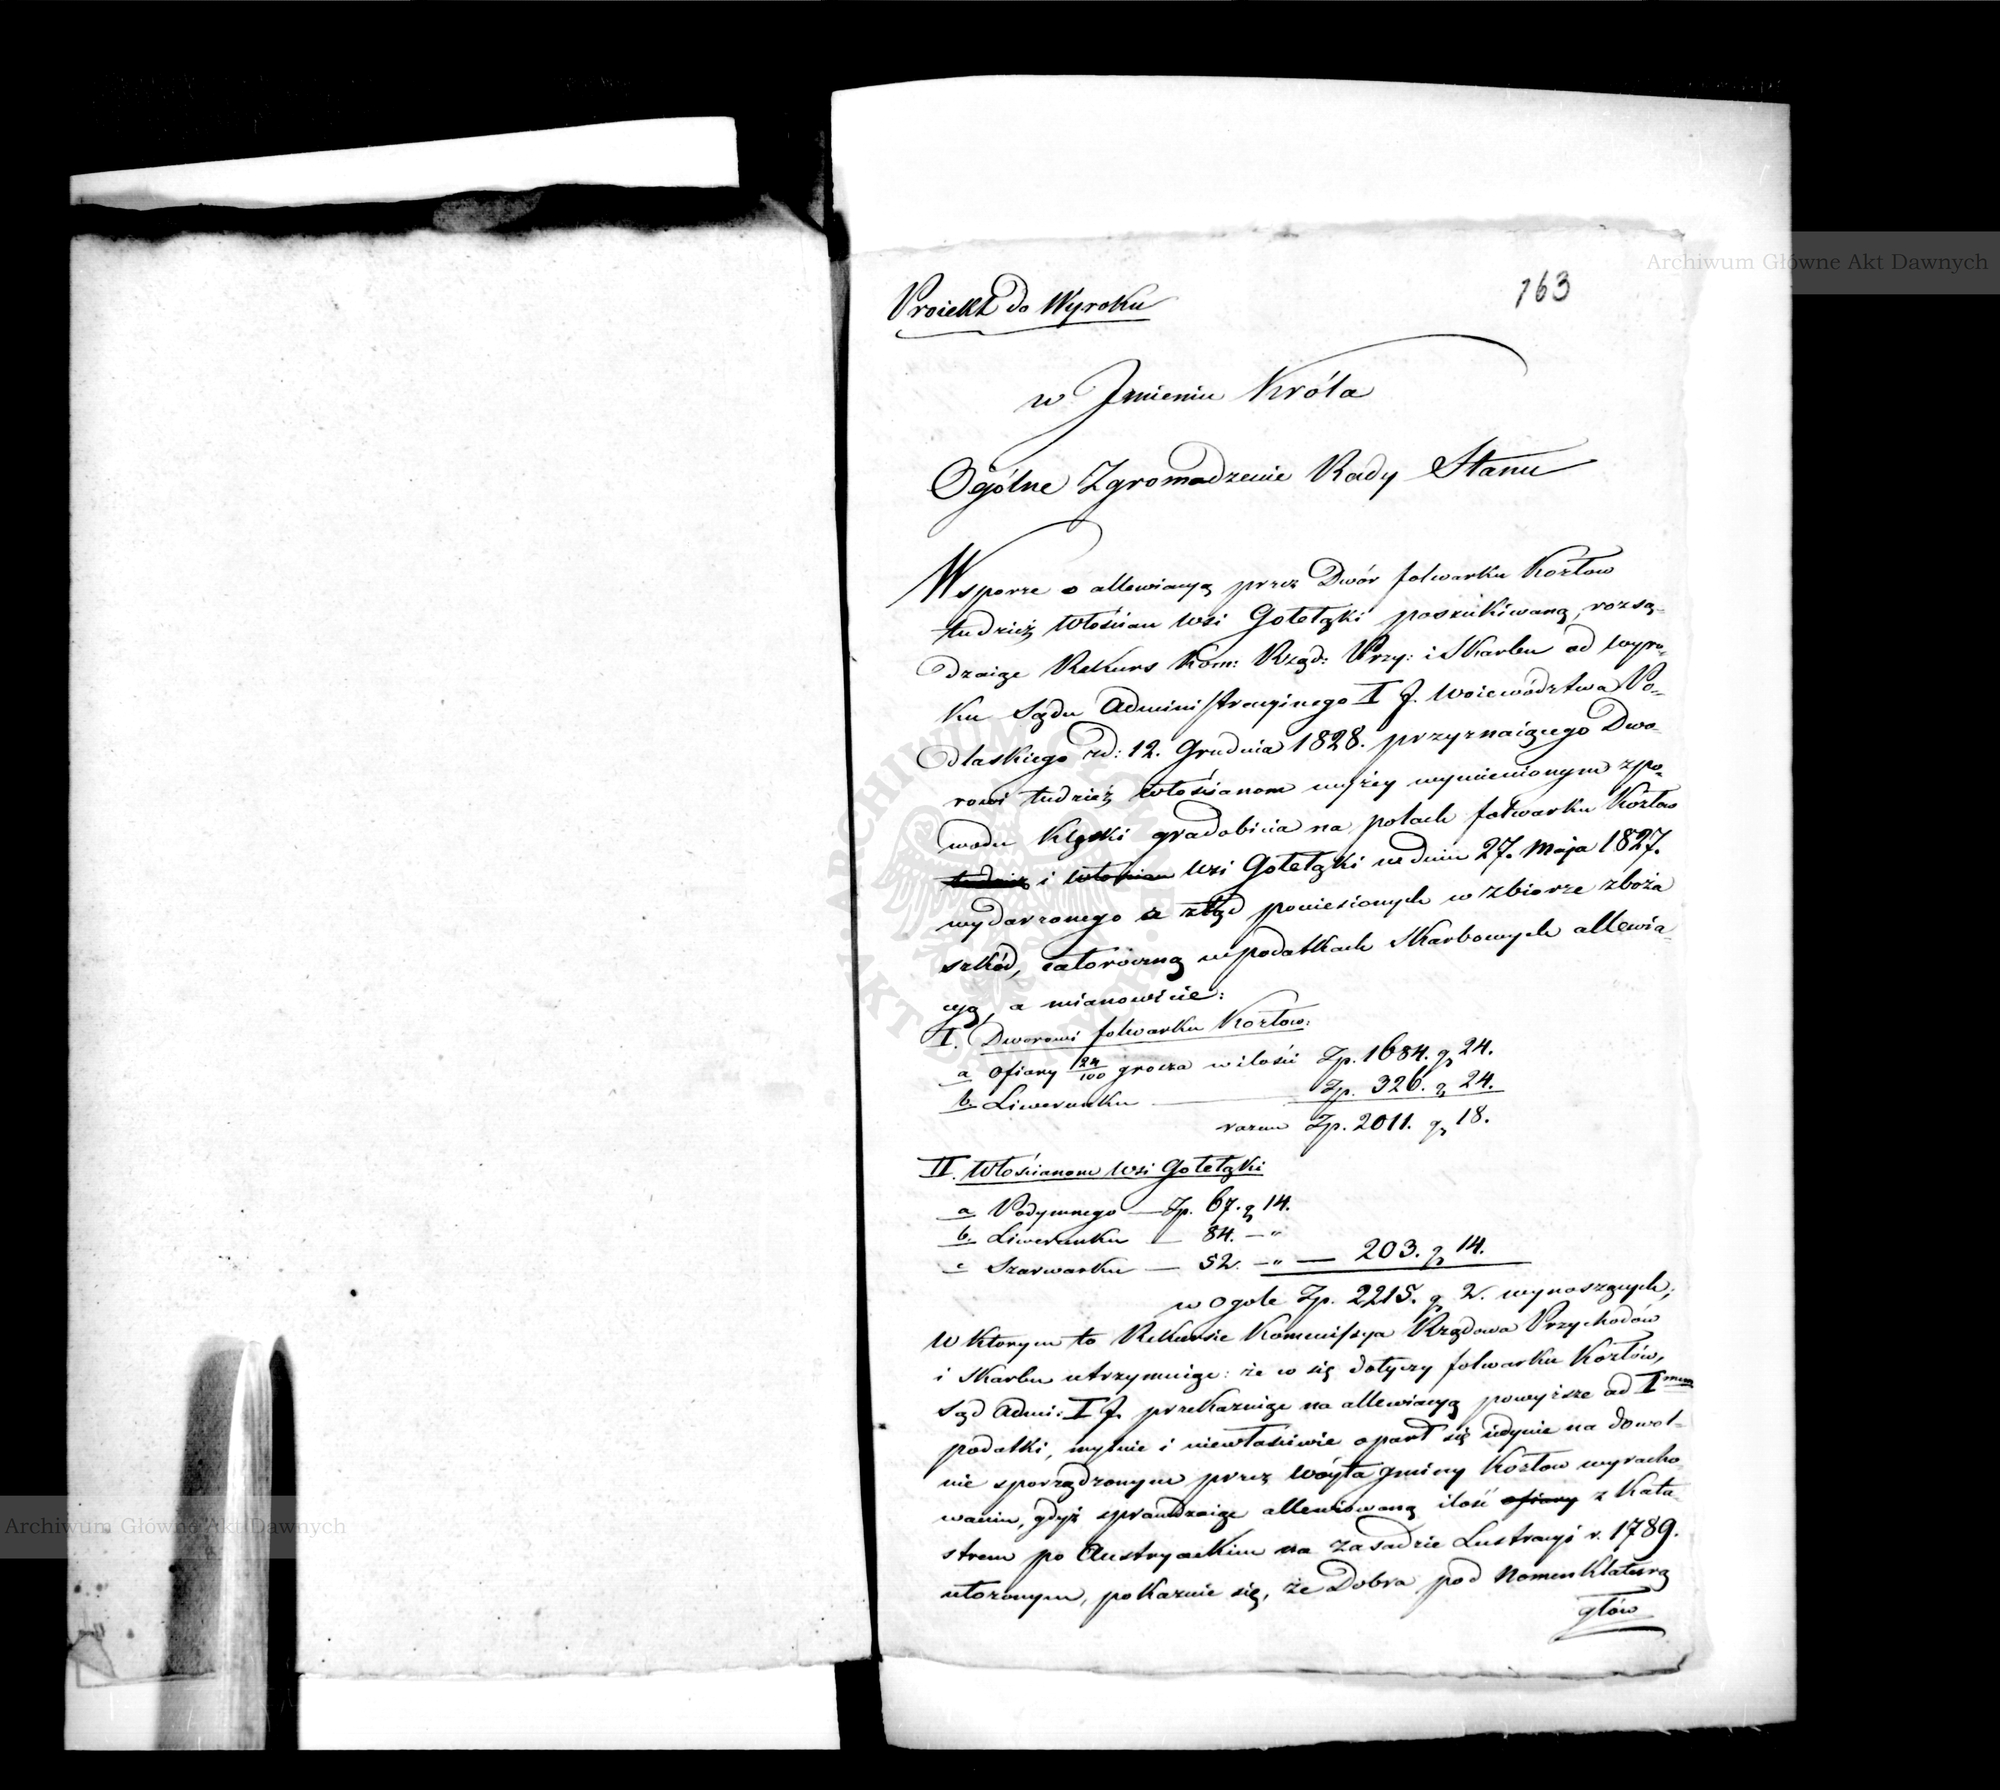 163
Proiekt do Wyroku
w Jmieniu Króla
Ogólne Zgromadzenie Rady Stanu
W sporze o allewiacyą przez Dwór folwarku Kozłow
tudzież Włościan wsi Gołełąki poszukiwaną, rozsą-
dzaiąc Rekurs Kom: Rząd: Przy: i Skarbu od wyro-
ku Sądu Administracyinego I J. Woiewództwa Po-
dlaskiego zd: 12. Grudnia 1828. przyznaiącego Dwo-
rowi tudzież Włościanom wyżey wymienionym zpo-
wodu klęski gradobicia na polach folwarku Kozłow
tudzież i Włościan wsi Gołełąki w dniu 27. Maja 1827.
wydarzonego a ztąd poniesionych w zbiorze zboża
szkód, całoroczną w podatkach Skarbowych allewia-
cyą, a mianowicie:
I. Dworowi folwarku Kozłow:
a Ofiary 124/100 grosza w ilości Zp. 1684. g 24.
b. Liwerunku Zp. 326. g 24.
razem Zp. 2011. g 18.
II. Włościanom wsi Gołełąki
a Podymnego — Zp. 67. g 14.
b. Liwerunku — 84. — "
c Szarwarku — 52. — " — 203. g 14.
w ogole Zp. 2215. g 2. wynoszących;
w ktorym to Rekursie Kommissya Rządowa Przychodów
i Skarbu utrzymuiąc: że co się dotyczy folwarku Kozłów,
Sąd Admi: I J. przekazuiąc na allewiacyą powyższe ad I mum
podatki, mylnie i niewłaściwie oparł się iedynie na dowol-
nie sporządzonym przez Wóyta gminy Kozłow wyracho-
waniu, gdyż sprawdzaiąc allewiowaną ilość ofiary z Kata-
strem po Austryackim na zasadzie Lustracyi r. 1789.
ułożonym, pokazuie się, że Dobra pod Nomenklaturą
głów
Archiwum Główne Akt Dawnych
Archiwum Główne Akt Dawnych
ARCHIWUM GŁÓWNE AKT DAWNYCH